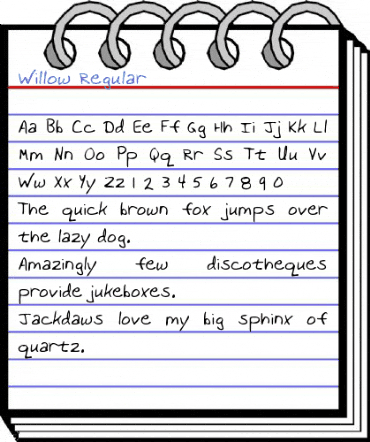 Willow Regular
Aa Bb Cc Dd Ee Ff Gg Hh Ii Jj Kk Ll
Mm Nn Oo Pp Qq Rr Ss Tt Uu Vv
Ww Xx Yy Zz 1 2 3 4 5 6 7 8 9 0
The quick brown fox jumps over
the lazy dog.
Amazingly few discotheques
provide jukeboxes.
Jackdaws love my big sphinx of
quartz.